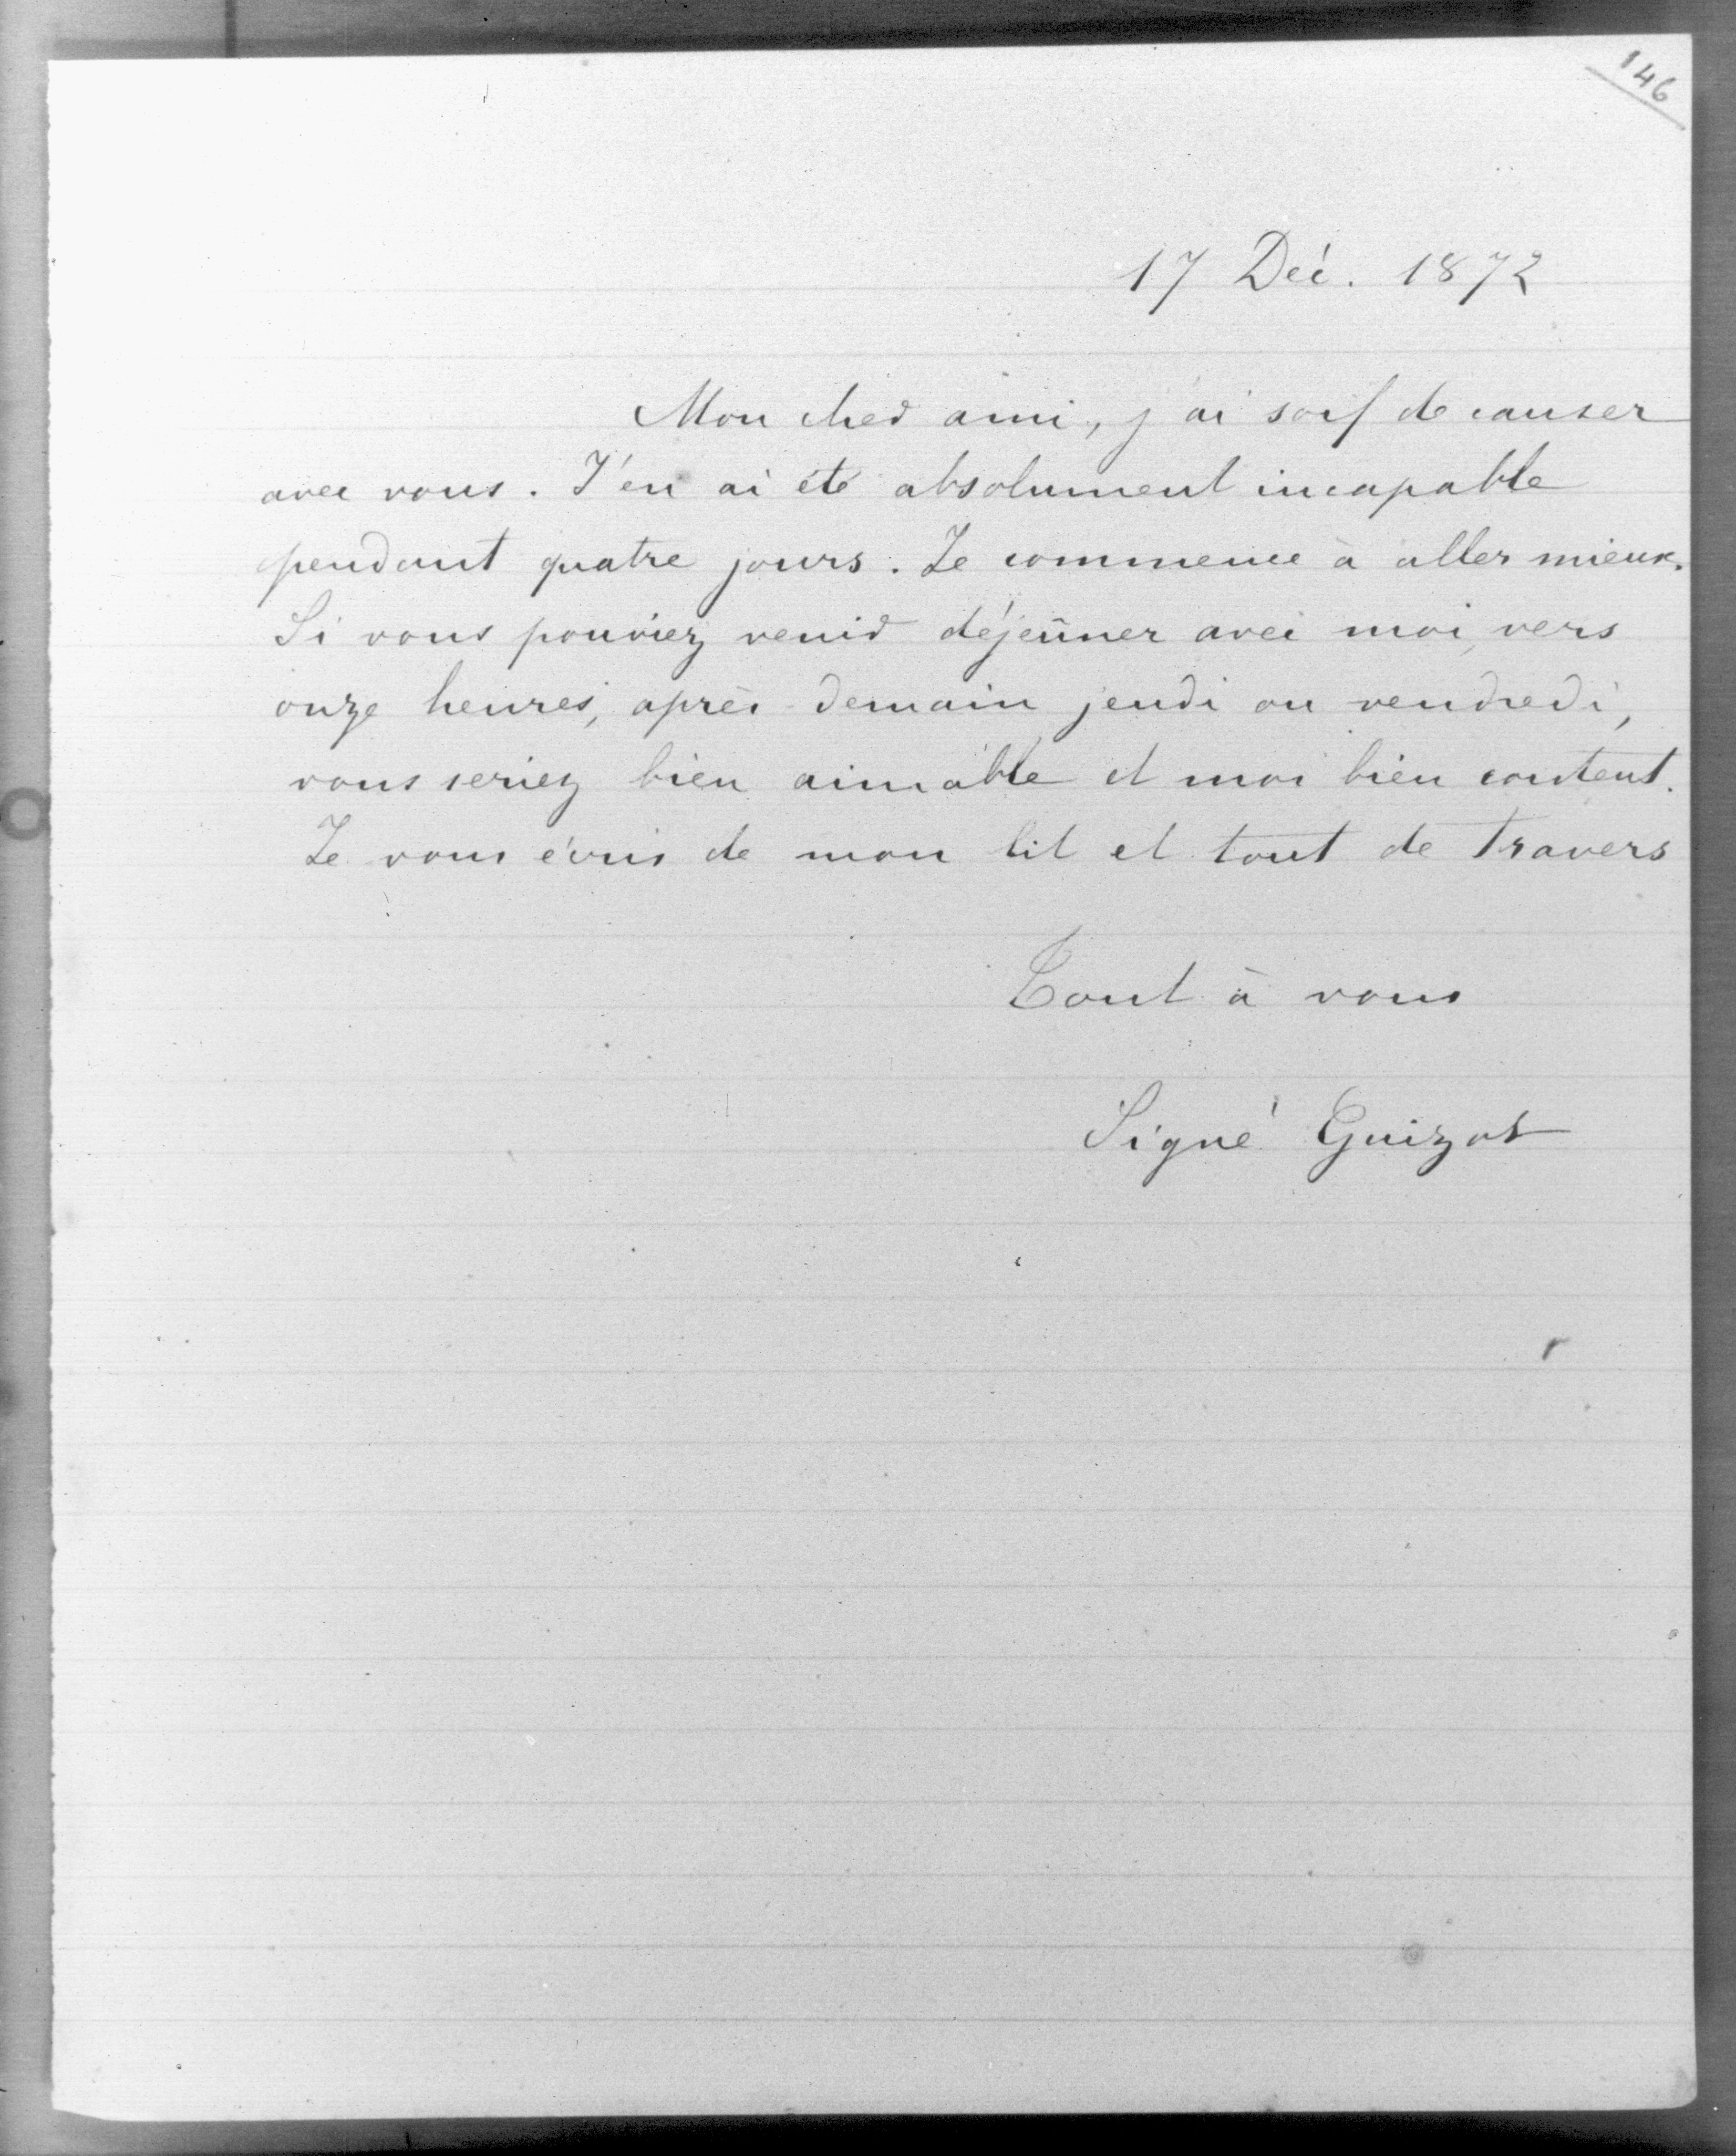 146
17 Déc. 1872
Mon cher ami, j'ai soif de causer
avec vous. J'en ai été absolument incapable
pendant quatre jours. Je commence à aller mieux.
Si vous pouviez venir déjeûner avec moi, vers
onze heures, après-demain jeudi ou vendredi,
vous seriez bien aimable et moi bien content.
Je vous écris de mon lit et tout de travers
Tout à vous
Signé Guizot